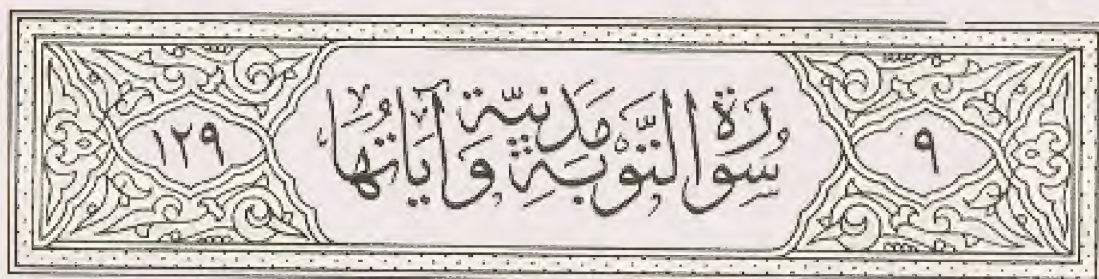 ٩
سُورَةُ التَّوْبَةِ مَدَنِيَّة وَآيَاتُهَا
١٢٩